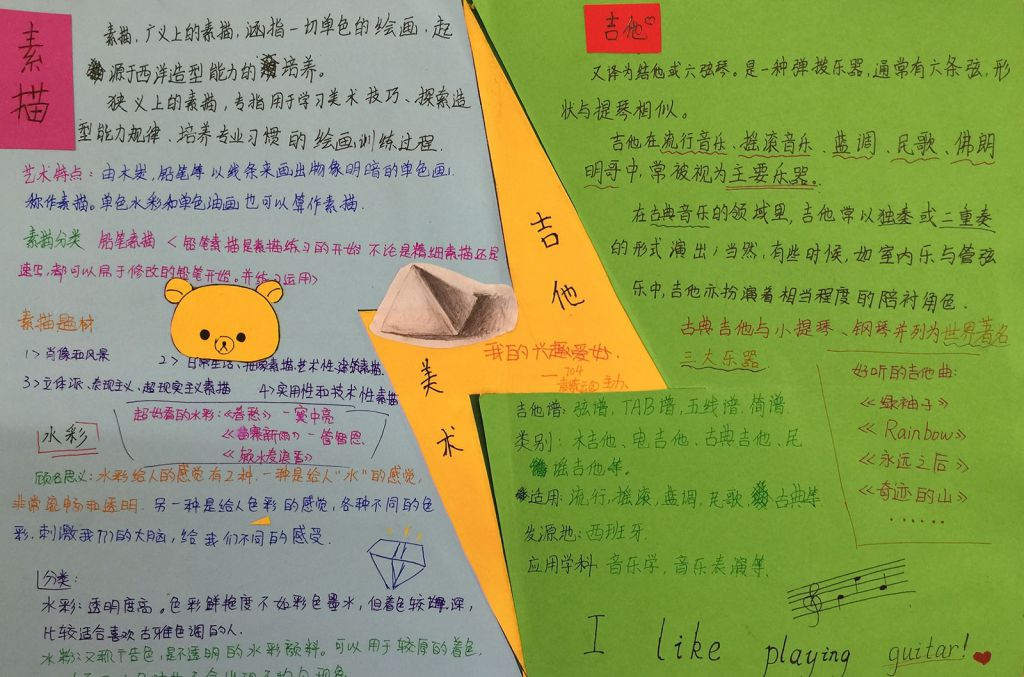 素描
素描,广义上的素描,涵指一切单色的绘画,起
源于西洋造型能力的培养。
狭义上的素描,专指用于学习美术技巧、探索造
型能力规律、培养专业习惯的绘画训练过程.
艺术特点:由木炭、铅笔等以线条来画出物像明暗的单色画.
称作素描。单色水彩和单色油画也可以算作素描.
素描分类 铅笔素描<铅笔素描是素描练习的开始 不论是精细素描还是
速写,都可以用于修改的铅笔开始,并练习运用>
素描题材
1>肖像和风景
2>日常生活、抽象素描,艺术性建筑素描.
3>立体派、表现主义、超现实主义素描 4>实用性和技术性素描
超好看的水彩:《春愁》—窦中亮
《鱼寨新雨》—管智恩
《微水发染音》
水彩
顾名思义:水彩给人的感觉有2种.一种是给人“水”的感觉,
非常流畅和透明.另一种是给人色彩的感觉,各种不同的色
彩.刺激我们的大脑,给我们不同的感受.
分类:
水彩:透明度高。色彩鲜艳度不如彩色墨水,但着色较深,
比较适合喜欢古雅色调的人.
水粉:又称广告色,是不透明的水彩颜料。可以用于较厚的着色,
吉他
美术
我的兴趣爱好.
704
吉他
又译为结他或六弦琴。是一种弹拨乐器,通常有六条弦,形
状与提琴相似。
吉他在流行音乐、摇滚音乐、蓝调、民歌、佛朗
明哥中,常被视为主要乐器。
在古典音乐的领域里,吉他常以独奏或二重奏
的形式演出;当然,有些时候,如室内乐与管弦
乐中,吉他亦扮演着相当程度的陪衬角色.
古典吉他与小提琴、钢琴并列为世界著名
三大乐器
好听的吉他曲:
《绿袖子》
《Rainbow》
《永远之后》
《奇迹的山》
......
吉他谱:弦谱,TAB谱,五线谱,简谱.
类别:木吉他、电吉他、古典吉他、民
谣吉他等.
适用:流行,摇滚,蓝调,民歌,古典等
发源地:西班牙.
应用学科:音乐学,音乐表演等.
I like playing guitar!